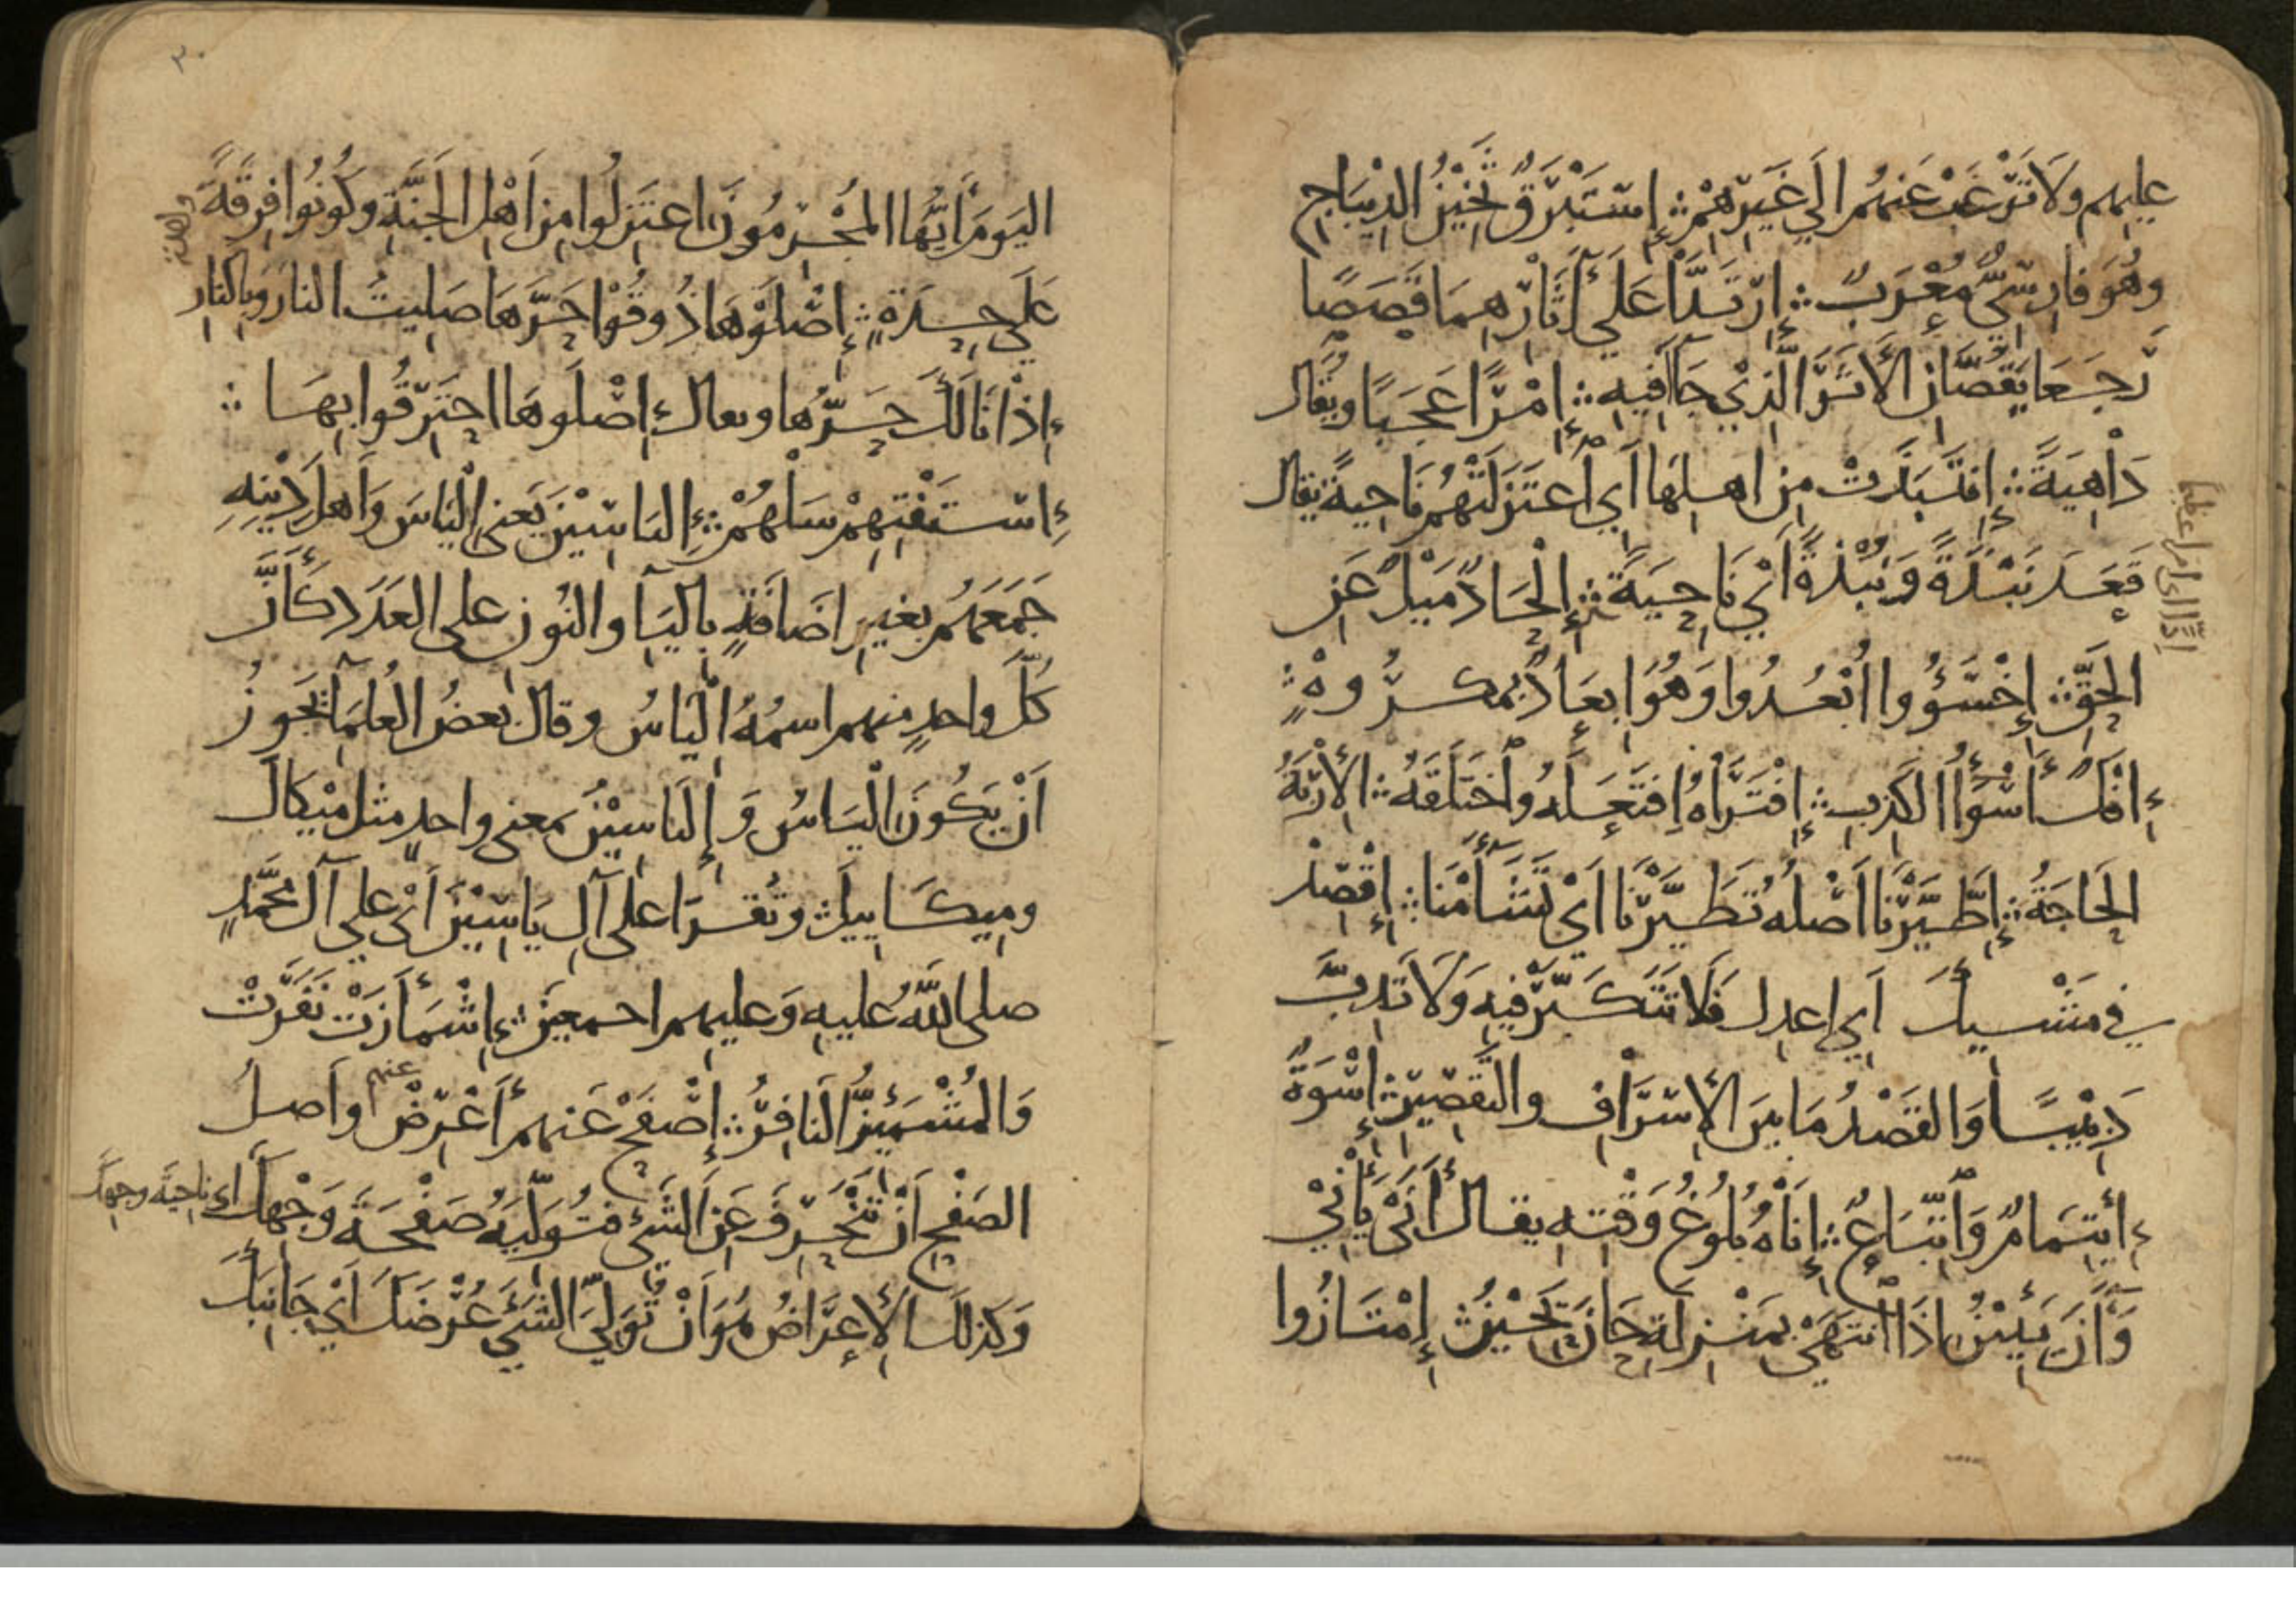 عليهم ولَا تَرْغَبْ عَنهُم الَي غَيرِهِمْ ؞ إسْتَبْرَقٌ ثَخِيْنُ الدِيْبَاجِ
وهُوَ فارِسيٌّ مُعْرَبٌ ؞ إرْتَدَّا عَلَي أثَارِهِمَا قَصَصًا
رَجَعَا يَقُصَّانِ الأثَرَ الَّذِيْ جَآا فِيهِ ؞ إمْرًا عَجَبًا ويُقَال
دَاْهِيَةً ؞ إنتَبَذَتْ مِن اهلِهَا أي اعْتَزَلَتْهُم نَاحِيةً يقال
قَعَدَ نَبْذَةً وَنُبْذةً أيْ نَاحِيَةً ؞ إلْحَادٌ مَيْلٌ عَنِ
الحَقِّ ؞ إخْسَؤُوا ابْعُدُوا وَهُوَ ابعَادٌ بمكرُوهٍ ؞
إفْكٌ أسْوَأُ الكَذِبِ ؞ إفْتَرَاهُ افتَعَلَهُ واخْتَلَقَهُ ؞ الأرْبَةُ
الحَاجَةُ ؞ إطَّيَّرْنَا أصْلُه تَطَيَّرْنَا أيْ تَشَأَمْنَا ؞ إقْصِدْ
في مَشْيِكَ أي اعدِل فَلَا تَتَكَبَّرْ فِيهِ وَلَا تَدِبَّ
دَبِيْبًا وَالقَصْدُ مَا بينَ الإسْرَافِ والتقَصِيْرِ ؞ إسْوَةٌ
إيْتِمَامٌ وَاتِّبَاعٌ ؞ إنَاهُ بُلُوغَ وَقْتِهِ يقال أنَىْ يَأْنِيْ
وَأَنَ يَئِيْنُ اذَا انتَهَىْ بمَنْزِلَةِ حَانَ يَحِيْنُ ؞ إمْتَازُوا
إدًّا اي امرا عظيما
٣٠
اليَومَ أيُّهَا المُجْرِمُونَ اعتَزِلُوا مِن أهْلِ الجَنَّةِ وكُونُوا فِرقَةً
عَلَي حِدَةٍ ؞ إصْلَوْهَا ذُوقُوْا حَرَّهَا صَلِيتُ النارَ وبالنارِ
إذَا نَالَكَ حَرُّهَا ويقال إصْلَوهَا احتَرِقُوا بِهَا ؞
إسْتَفْتِهِمْ سَلْهُمْ ؞ إليَاسِيْنَ يَعنِي إليَاسَ وَأهلَ دِيْنِهِ
جَمَعَهُم بغيرِ اضَافَةٍ بِاليَآ والنُونِ علي العَدَدِ كَأَنَّ
كُلَّ واحدٍ منهم اسمُهُ إلْيَاسُ وقال بَعضُ العُلمَآ يَجَوزُ
أنْ يَكُونَ إلْيَاسُ وَ إليَاسِيْنُ بمعنى واحدٍ مثل مِيْكَالَ
ومِيكَاييلَ ؞ وتُقرَا علي آلِ يَاسِيْنَ أيْ علي آلِ مُحَمَّدٍ
صلي اللَّهُ عليهِ وَعليهم اجمعينَ ؞ إشْمَأَزَتْ نَفَرَتْ
وَالمُشْمَئِزُّ النَافِرُ ؞ إصْفَحْ عَنهم أعْرِضْ عنهم وأصلُ
الصَفْحِ أنْ تَنْحَرِفَ عَنِ الشَيْءِ فتُوَلِّيَهُ صَفْحَةَ وَجْهِكَ اي ناحيَةَ وجهِكَ
وَكذلكَ الإعرَاضُ هُوَ أنْ تُوَلِّيَ الشَيْءَ عُرْضَكَ أيْ جَانِبَكَ